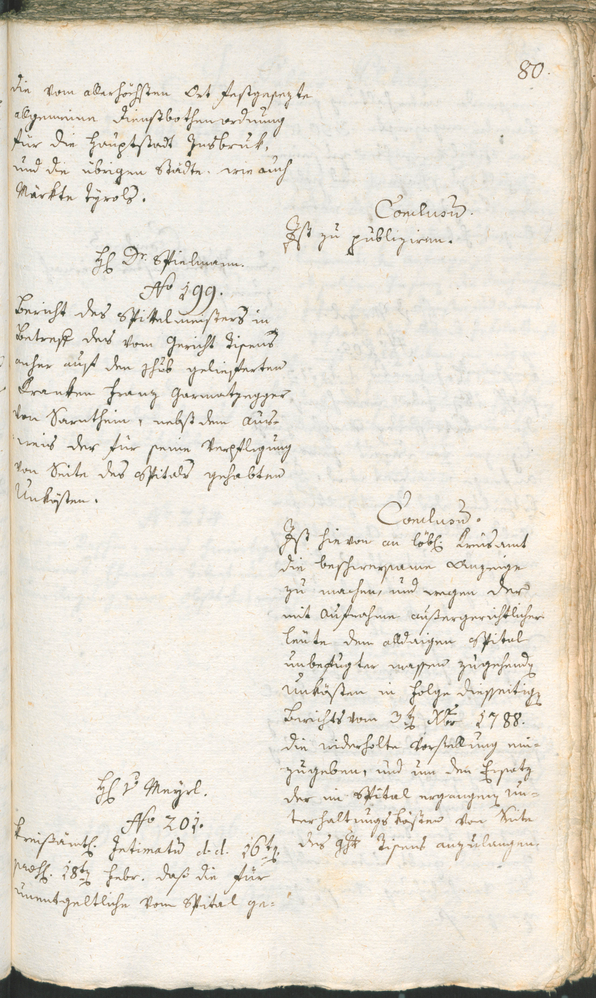 80.
die vom allerhöchsten Ort festgesezte
allgemeine Dienstbothenordnung
für die Hauptstadt Insbruk,
und die übrigen Städte. wie auch
Märkte Tyrols.
Conclusum.
Ist zu publiziren.
H. Dr. Spielmann.
No 199.
Bericht des Spittelmeisters in
Betreff des vom Gericht Tisens
anher auf den Schub gelieferten
Kranken Franz Garmatzegger
von Sarnthein, nebst dem Aus-
weis der für seine Verpflegung
von Seite des Spitals gehabten
Unkösten.
Conclusum.
Ist hievon an löbl. Kreisamt
die beschwersame Anzeige
zu machen, und wegen der
mit Aufnahme außergerichtlicher
Leüte dem alldaigen Spital
unbefugter massen zugehend
Unkösten in Folge diesseitig
Berichts vom 3t Xbr 1788.
die widerholte Vorstellung ein-
zugeben, und um den Ersatz
der im Spital ergangen Un-
terhaltungskösten von Seite
des Tisens anzulangen.
H. v. Meyrl.
No 201.
Kreisämtl. Intimatum d. d. 16t
praes. 18t Febr. daß die für
unentgeltliche vom Spital ge-